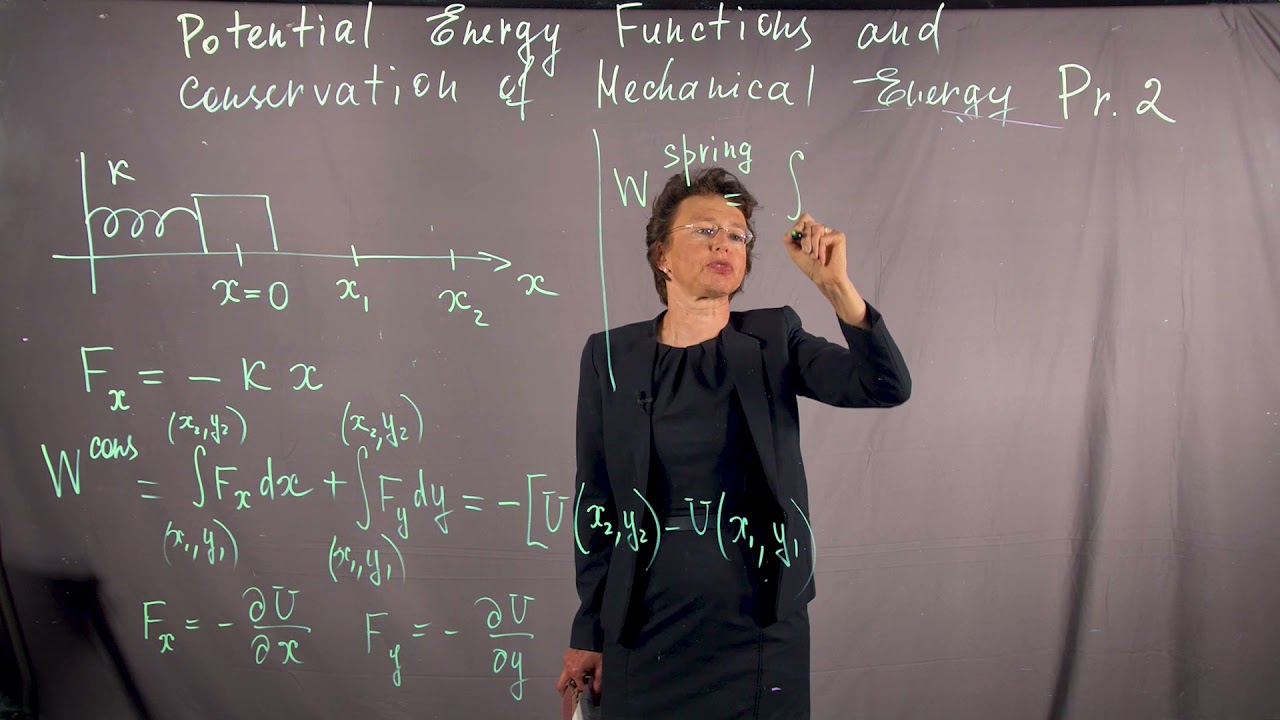 Potential Energy Functions and
Conservation of Mechanical Energy Pr. 2
K
x=0 x₁ x₂ x
Fₓ = - K x
W^cons = ∫_(x₁,y₁)^(x₂,y₂) Fₓ dx + ∫_(x₁,y₁)^(x₂,y₂) F_y dy = -[U(x₂,y₂) - U(x₁,y₁)
Fₓ = - ∂U/∂x F_y = - ∂U/∂y
W^spring = ∫